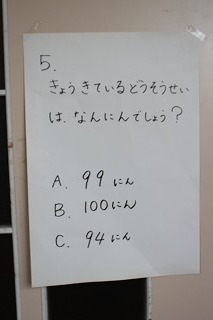 5.
きょうきているどうそうせい
は、なんにんでしょう？
A. 99にん
B. 100にん
C. 94にん